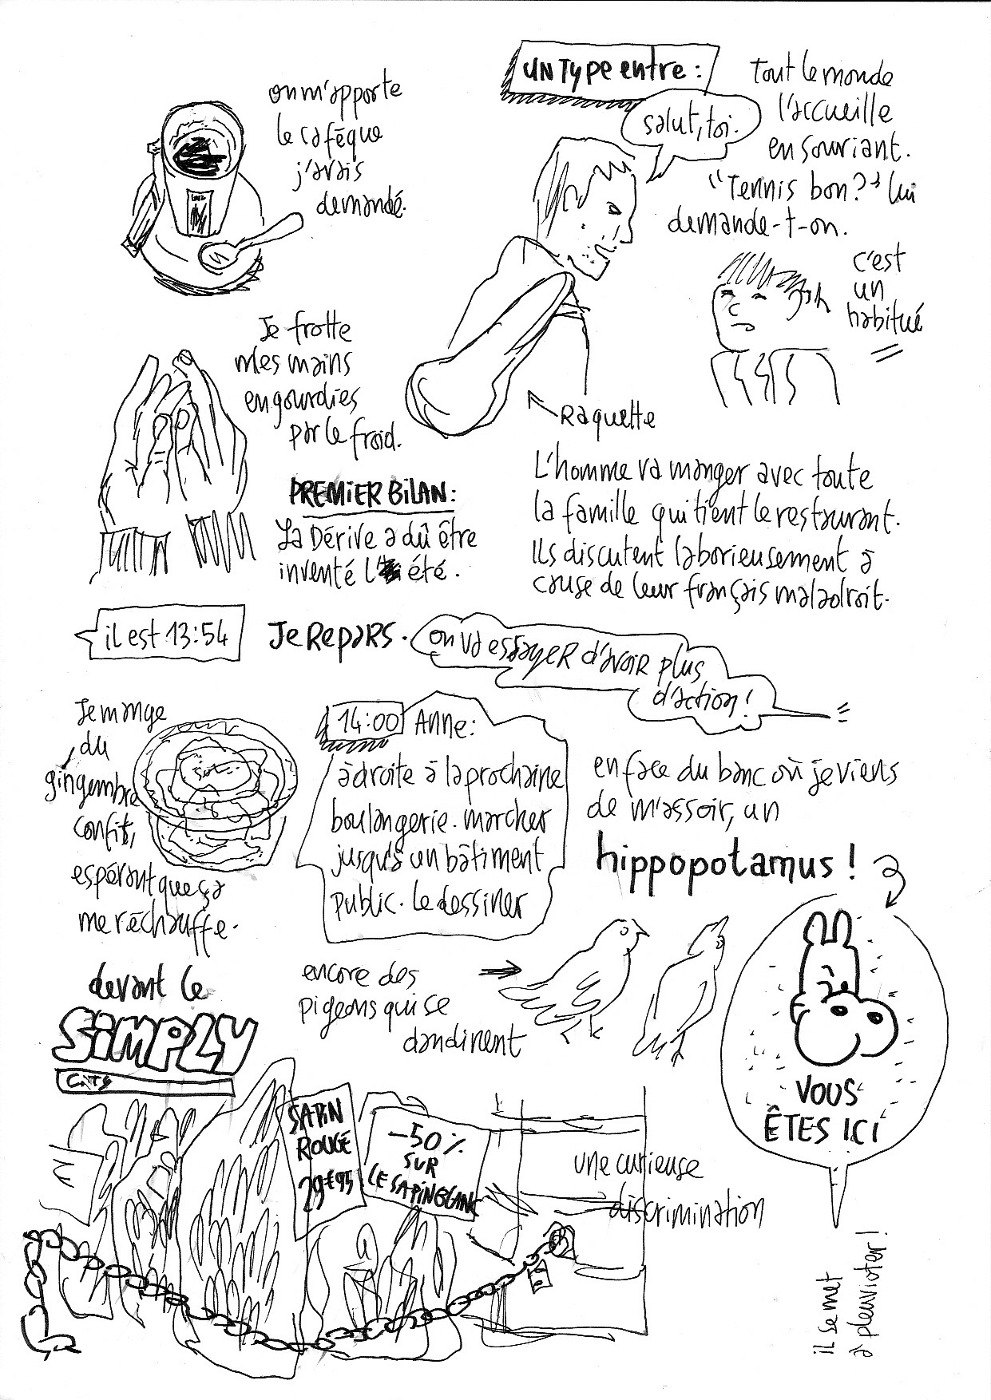 on m'apporte
le café que
j'avais
demandé.
un type entre :
salut, toi.
Tout le monde
l'accueille
en souriant.
"Tennis bon?" lui
demande-t-on.
c'est
un
habitué
Raquette
Je frotte
mes mains
engourdies
par le froid.
PREMIER BILAN :
La Dérive a dû être
inventé l' été.
L'homme va manger avec toute
la famille qui tient le restaurant.
Ils discutent laborieusement à
cause de leur français maladroit.
il est 13:54
Je Repars.
on va essayer d'avoir plus
d'action !
Je mange
du
gingembre
confit,
espérant que ça
me réchauffe.
14:00 Anne:
à droite à la prochaine
boulangerie. marcher
jusqu'à un bâtiment
public. le dessiner
en face du banc où je viens
de m'assoir, un
hippopotamus !
encore des
pigeons qui se
dandinent
VOUS
ÊTES ICI
devant le
SIMPLY
CITY
SAPIN
ROUGE
29€95
-50%
SUR
LE SAPIN BLANC
une curieuse
discrimination
il se met
à pleuvioter !